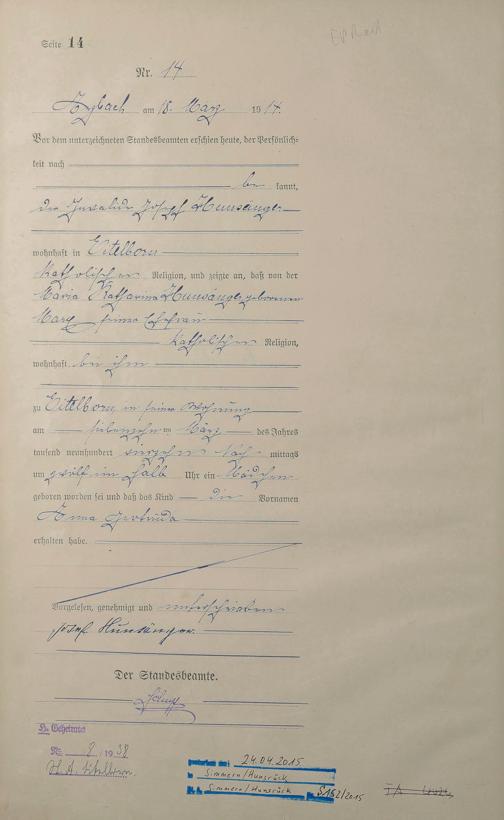 Seite 14
Nr. 14
Arzbach am 18. März 1914.
Vor dem unterzeichneten Standesbeamten erschien heute, der Persönlich-
keit nach
be kannt,
der Invalide Joseph Hunsänger
wohnhaft in Eitelborn
katholischer Religion, und zeigte an, daß von der
Maria Katharina Hunsänger geborenen
Marx seiner Ehefrau
katholischer Religion,
wohnhaft bei ihm
zu Eitelborn in seiner Wohnung
am siebenzehnten März des Jahres
tausend neunhundert vierzehn nach mittags
um zwölf ein halb Uhr ein Mädchen
geboren worden sei und daß das Kind die Vornamen
Anna Gertruda
erhalten habe.
Vorgelesen, genehmigt und unterschrieben
Josef Hunsänger.
Der Standesbeamte.
Nr. 8/1938
St. A. Eitelborn.
gestorben am: 24.04.2015
in Simmern/Hunsrück
St. A. Simmern/Hunsrück Nr. S152/2015